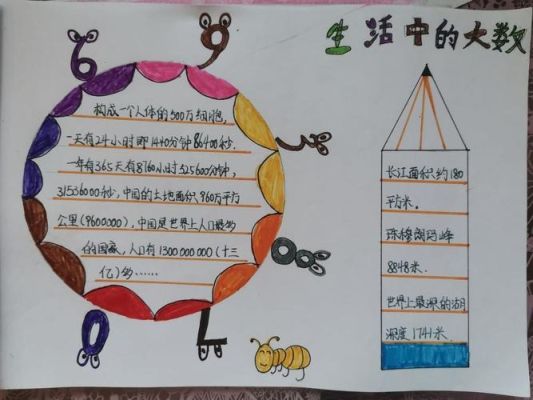 生活中的大数
构成一个人体的500万细胞,
一天有24小时即1440分钟86400秒.
一年有365天有8760小时525600分钟,
31536000秒,中国的土地面积960万平方
公里(9600000),中国是世界上人口最多
的国家,人口有1300000000(十三
亿)多……
长江面积约180
平方米.
珠穆朗玛峰
8848米.
世界上最深的湖
深度1741米
6
9
3
8
7
0